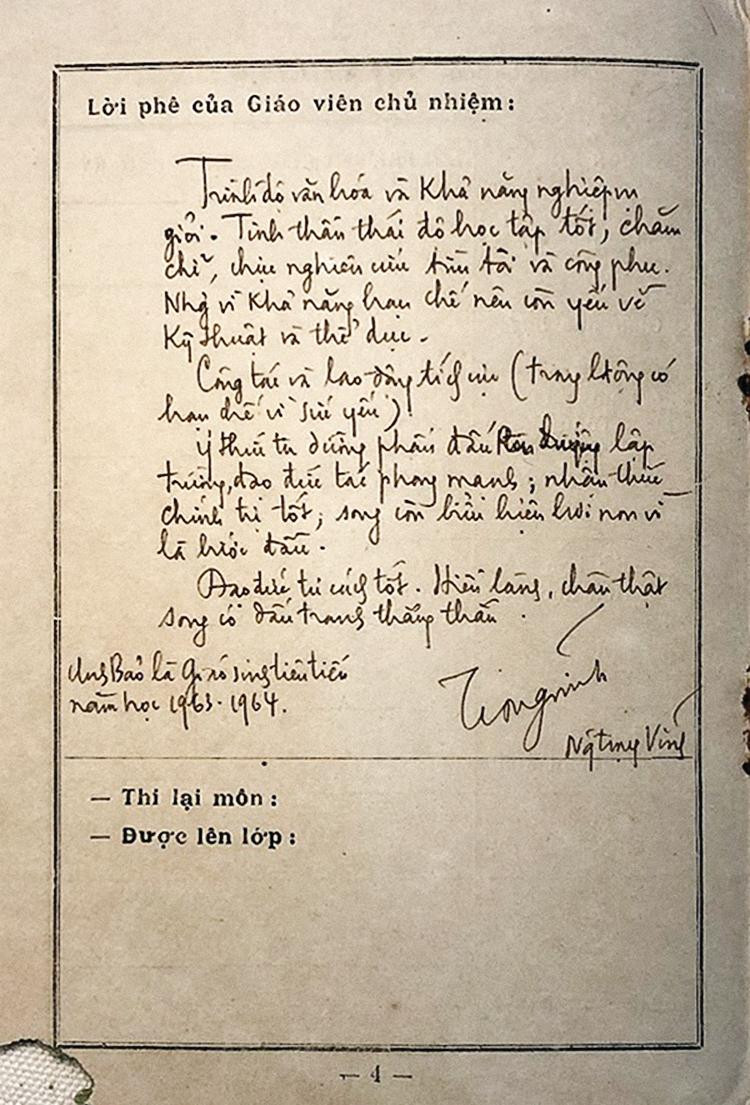 Lời phê của Giáo viên chủ nhiệm:
Trình độ văn hóa và khả năng nghiệp vụ
giỏi. Tinh thần thái độ học tập tốt, chăm
chỉ, chịu nghiên cứu tìm tòi và công phu.
Nhg vì khả năng hạn chế nên còn yếu về
Kỹ thuật và thể dục.
Công tác và lao động tích cực (tuy không có
hạn chế vì sức yếu)
Ý thức tu dưỡng phấn đấu lập
trường, đạo đức tác phong mạnh; nhận thức
chính trị tốt; song còn biểu hiện hơi non vì
là bước đầu.
Đạo đức tư cách tốt. Hiền lành, chân thật
song có đấu tranh thẳng thắn.
Anh Bảo là Giáo sinh tiên tiến
năm học 1963-1964.
Vinh
— Thi lại môn:
— Được lên lớp:
— 4 —